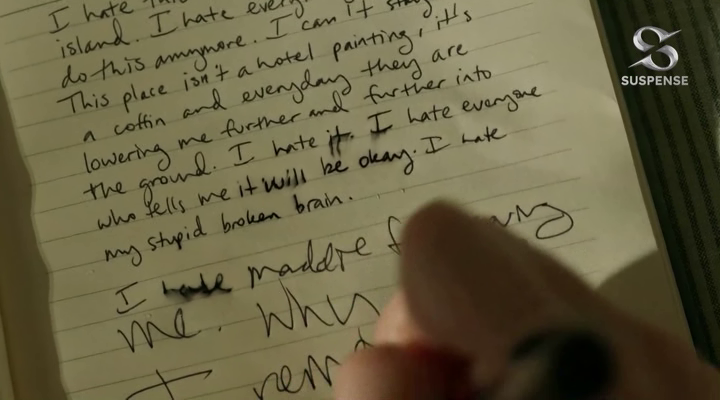 I hate
island. I hate
do this anymore. I can't stay
This place isn't a hotel painting, it's
a coffin and everyday they are
lowering me further and further into
the ground. I hate it. I hate everyone
who tells me it will be okay. I hate
my stupid broken brain.
I hate maddie
me. Why
I
SUSPENSE